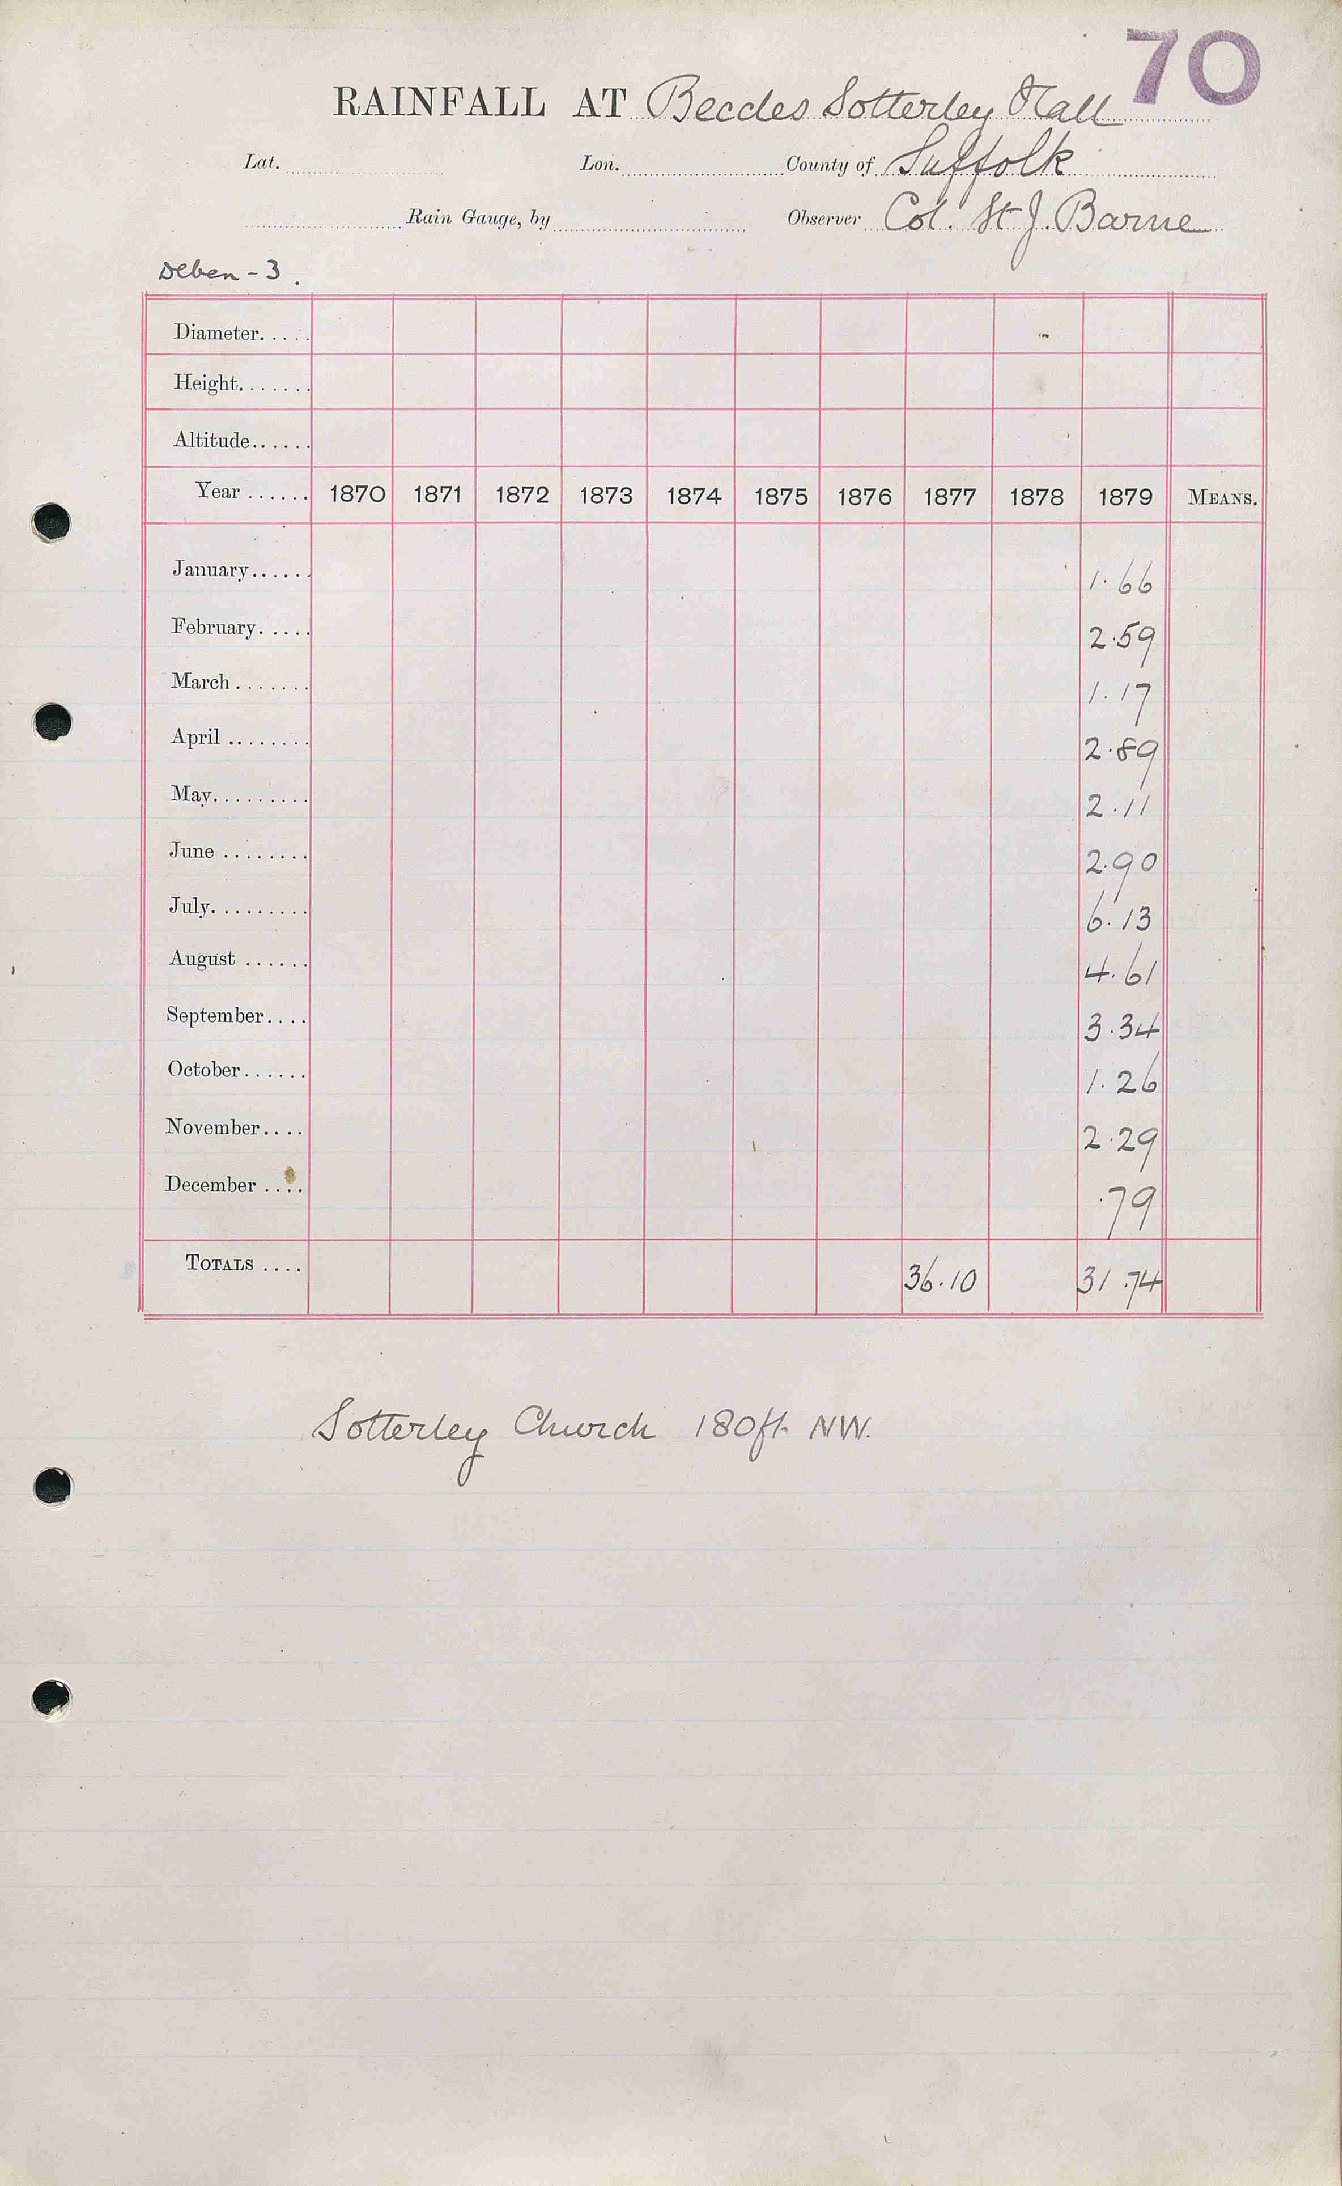 70
RAINFALL AT Beccles Sotterley Hall
Lat. Lon. County of Suffolk
Rain Gauge, by Observer Col. St J. Barne
Deben - 3.
Diameter.....
Height.......
Altitude......
Year ...... 1870 1871 1872 1873 1874 1875 1876 1877 1878 1879 MEANS.
January...... 1.66
February..... 2.59
March ....... 1.17
April ........ 2.89
May......... 2.11
June ........ 2.90
July......... 6.13
August ...... 4.61
September.... 3.34
October...... 1.26
November.... 2.29
December .... .79
TOTALS .... 36.10 31.74
Sotterley Church 180ft. NW.